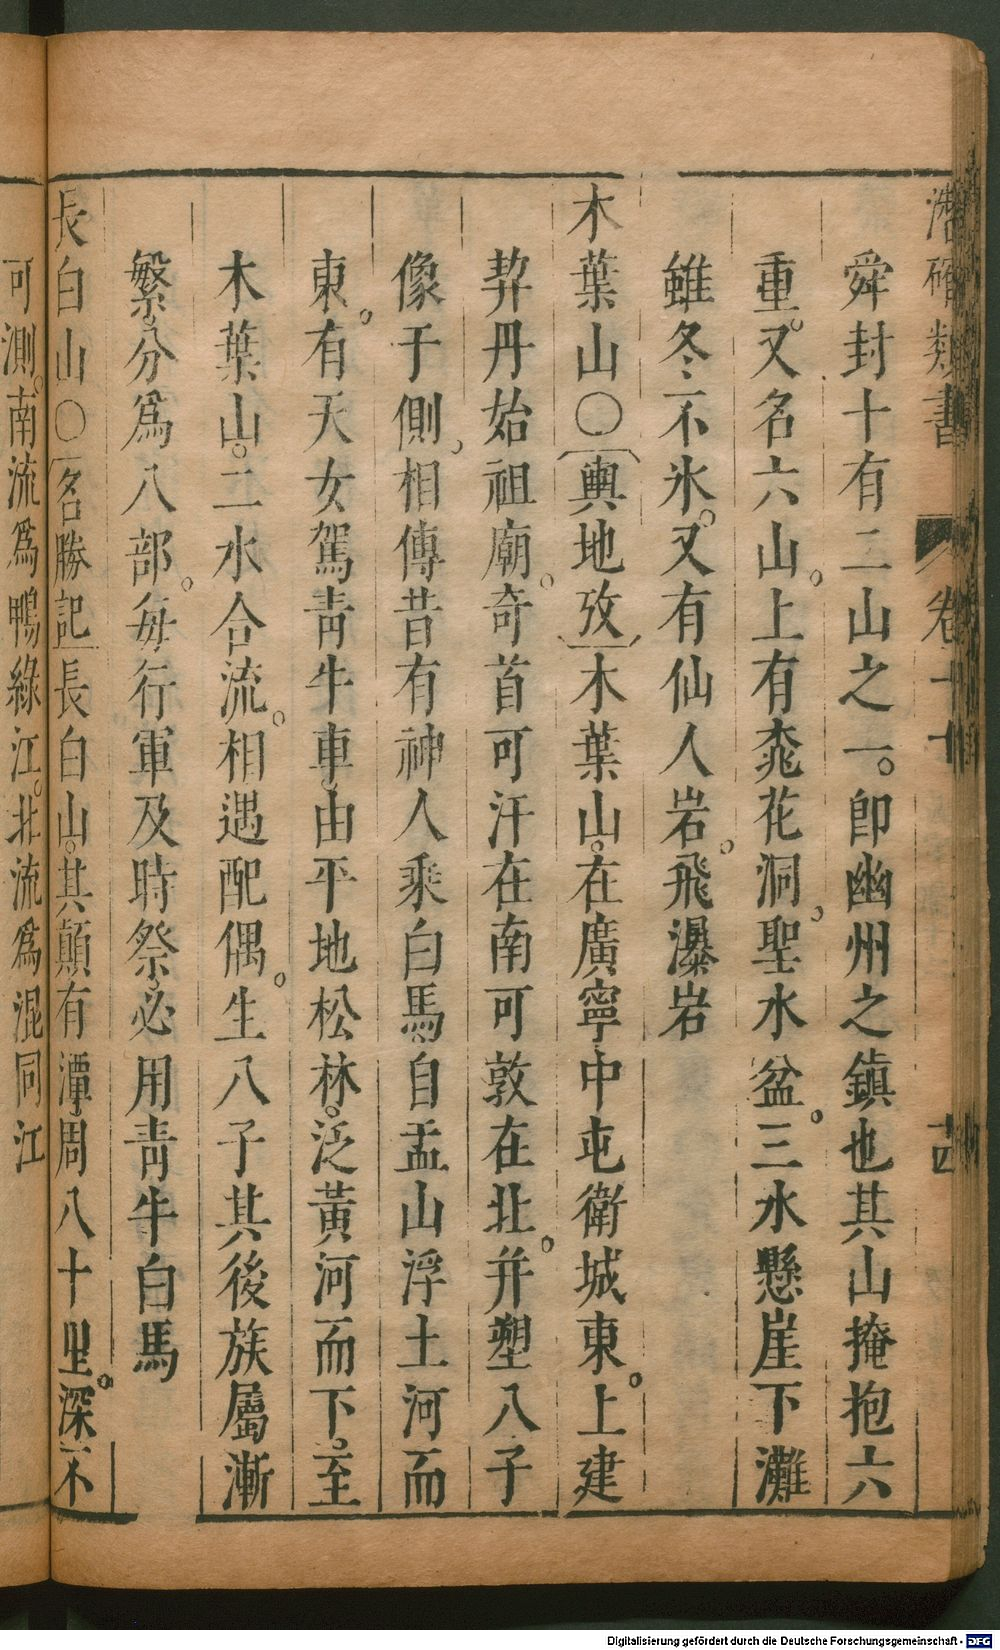 潛確類書 卷十 十四
舜封十有二山之一。卽幽州之鎮也其山掩抱六
重。又名六山。上有桃花洞。聖水盆。三水懸崖下灘
雖冬不氷。又有仙人岩。飛瀑岩
木葉山○〔輿地攷〕木葉山。在廣寧中屯衛城東。上建
契丹始祖廟。奇首可汗在南可敦在北。并塑八子
像于側。相傳昔有神人乘白馬。自盂山浮土河而
東。有天女駕靑牛車。由平地松林。泛黃河而下。至
木葉山。二水合流。相遇配偶。生八子其後族屬漸
繁。分爲八部。每行軍及時祭。必用靑牛白馬
長白山○〔名勝記〕長白山。其巔有潭。周八十里。深不
可測。南流爲鴨綠江。北流爲混同江
Digitalisierung gefördert durch die Deutsche Forschungsgemeinschaft - DFG